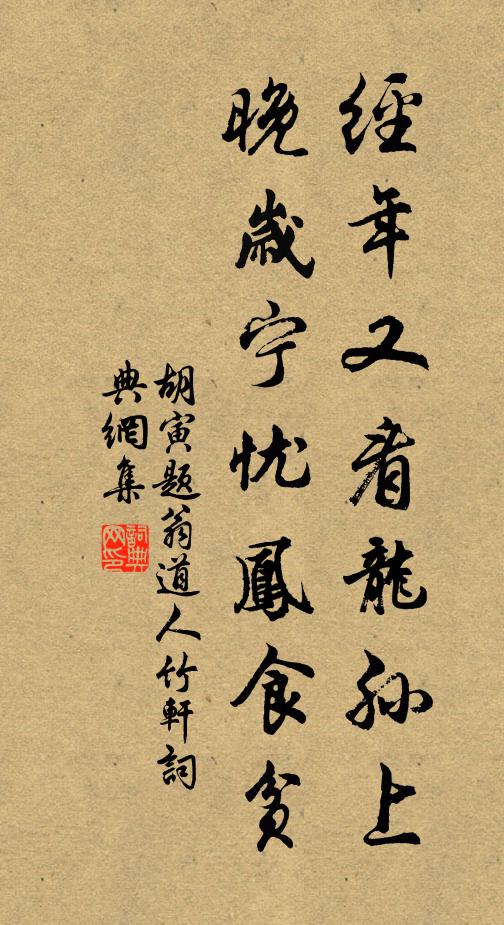 經年又看龍孙上
晚歲宁忧鳳食貧
胡寅題翁道人竹軒詞
典網集
詞典
网印